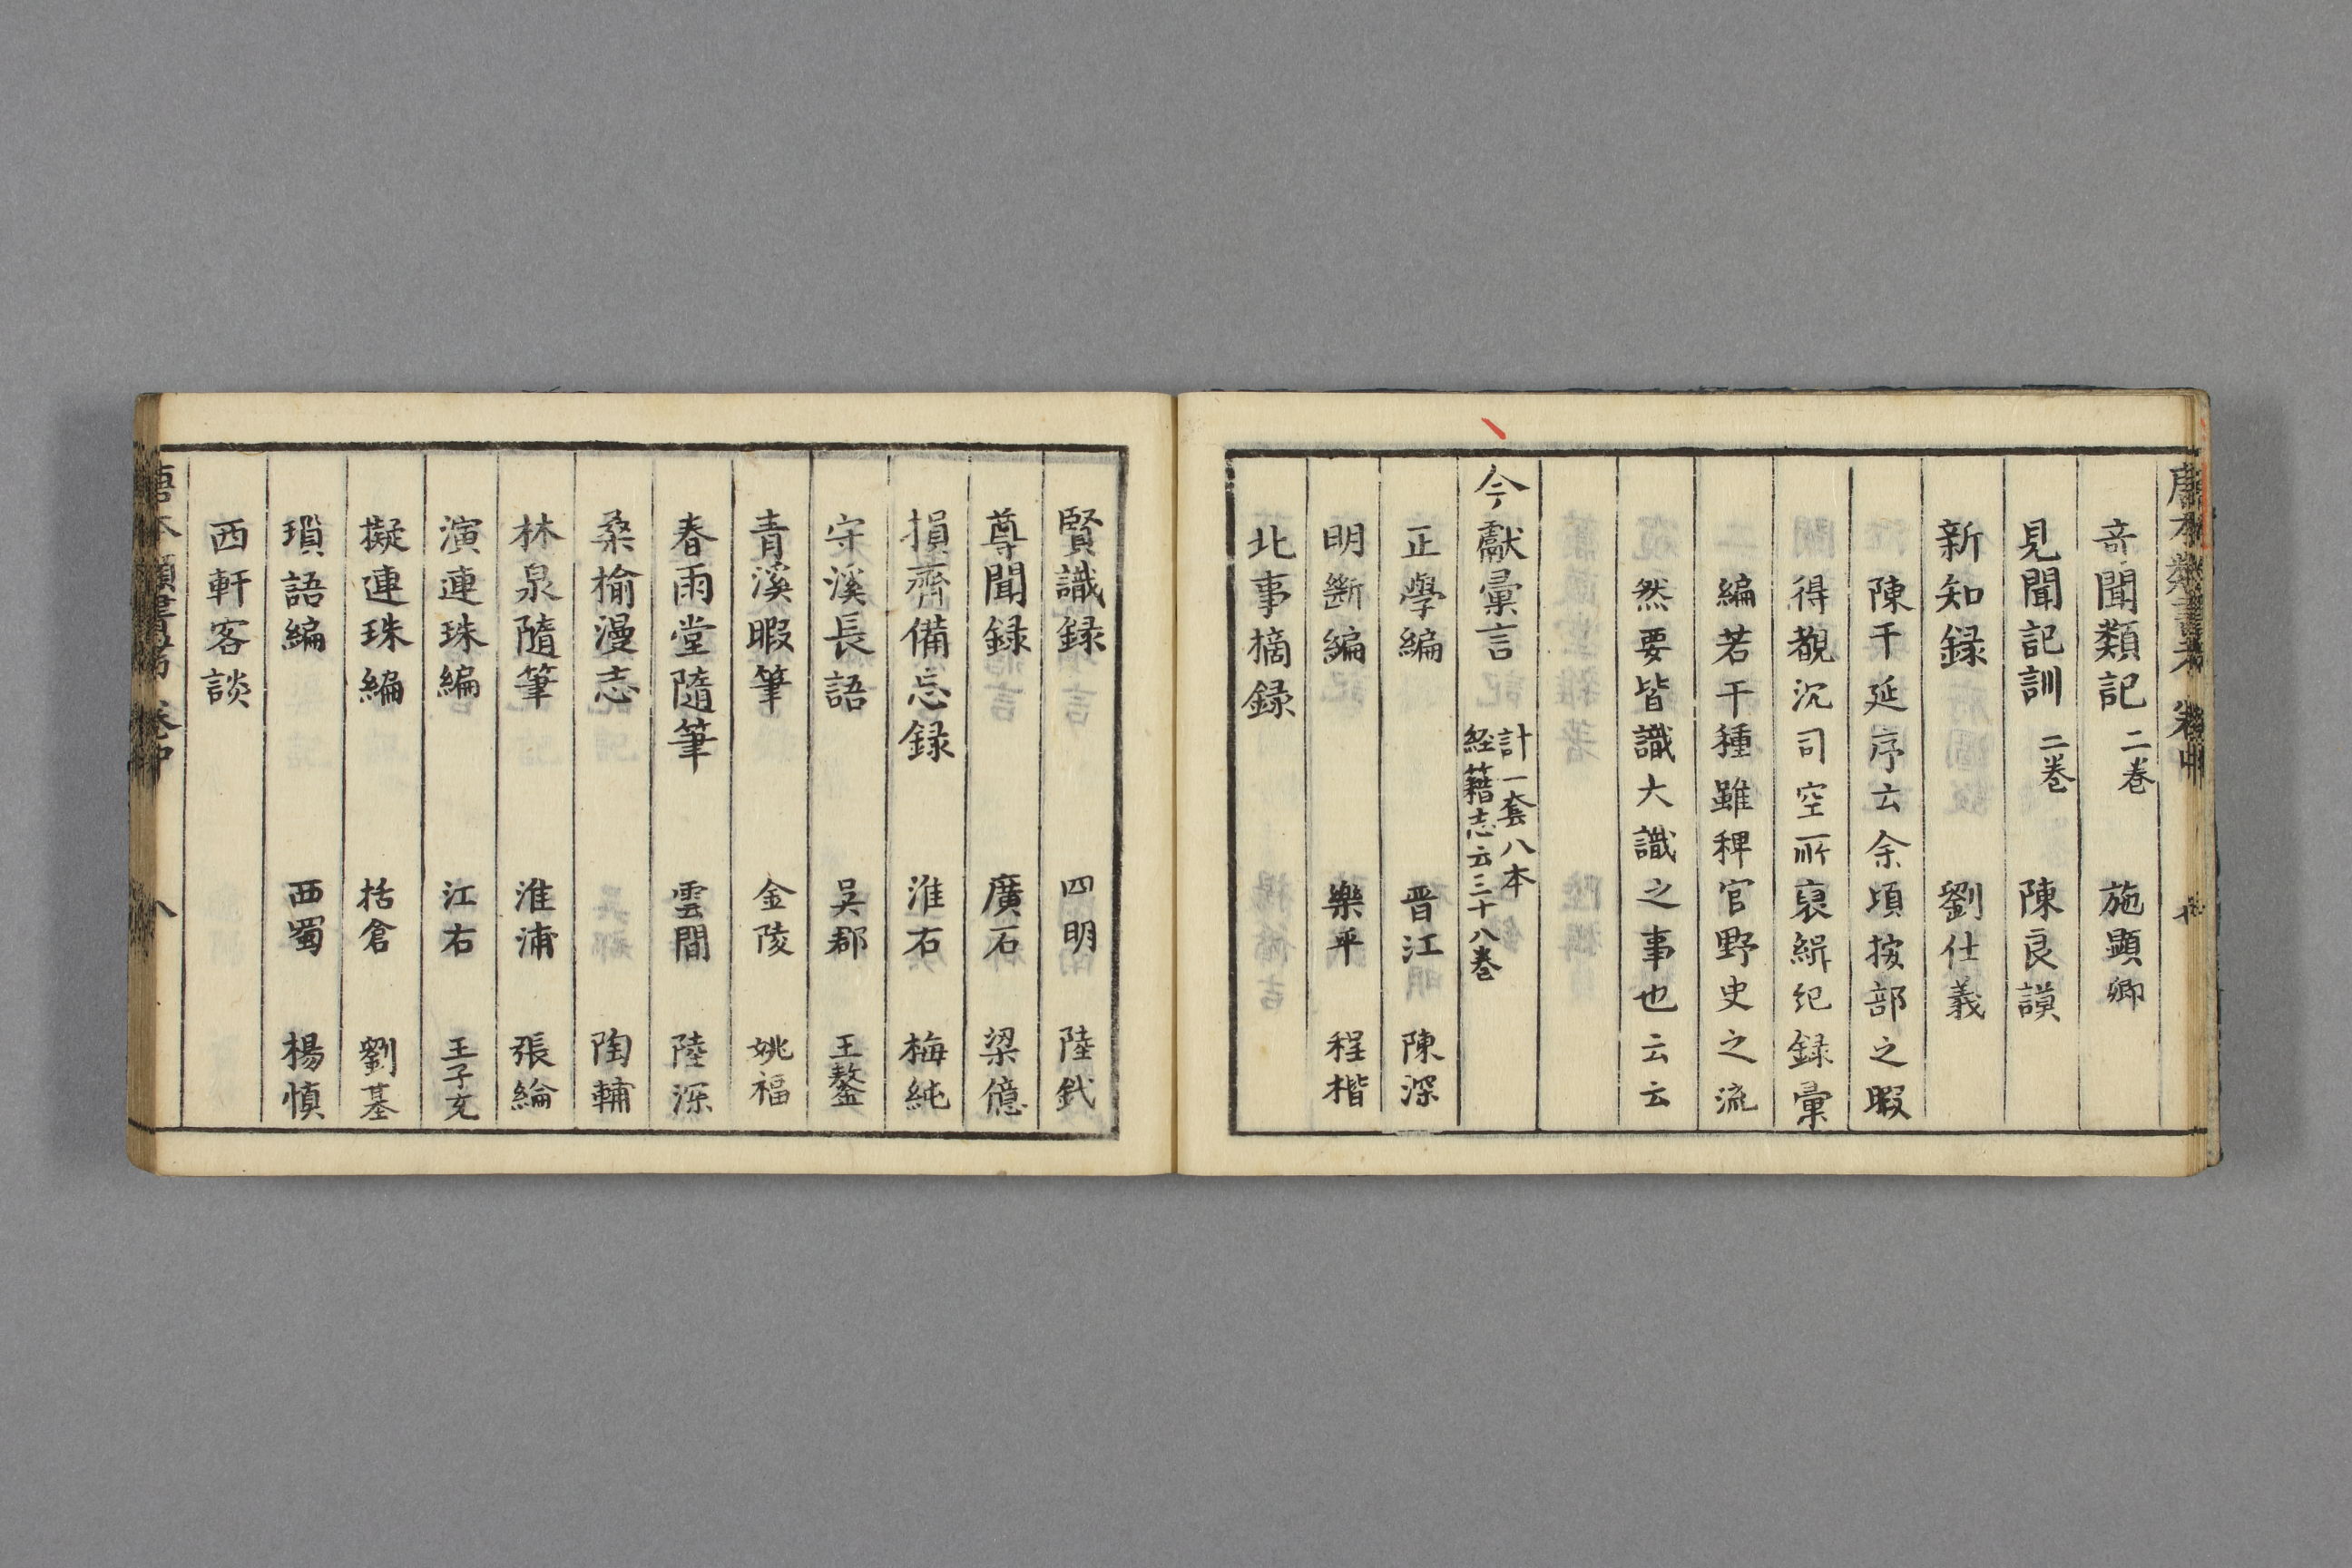 奇聞類記 二巻 施顕卿
見聞記訓 二巻 陳良謨
新知録 劉仕義
陳于延序云余頃按部之暇
得覩沉司空所裒緝紀録彙
編若干種雖稗官野史之流
然要皆識大識之事也云云
今獻彙言 計一套八本
経籍志云三十八巻
正學編 晋江 陳深
明断編 樂平 程楷
北事摘録
賢識録 四明 陸釴
尊聞録 廣石 梁億
損齊備忘録 淮右 梅純
守溪長語 吴郡 王鏊
青溪暇筆 金陵 姚福
春雨堂隨筆 雲間 陸深
桑榆漫志 陶輔
林泉隨筆 淮浦 張綸
演連珠編 江右 王子充
擬連珠編 括倉 劉基
瑣語編 西蜀 楊慎
西軒客談
八